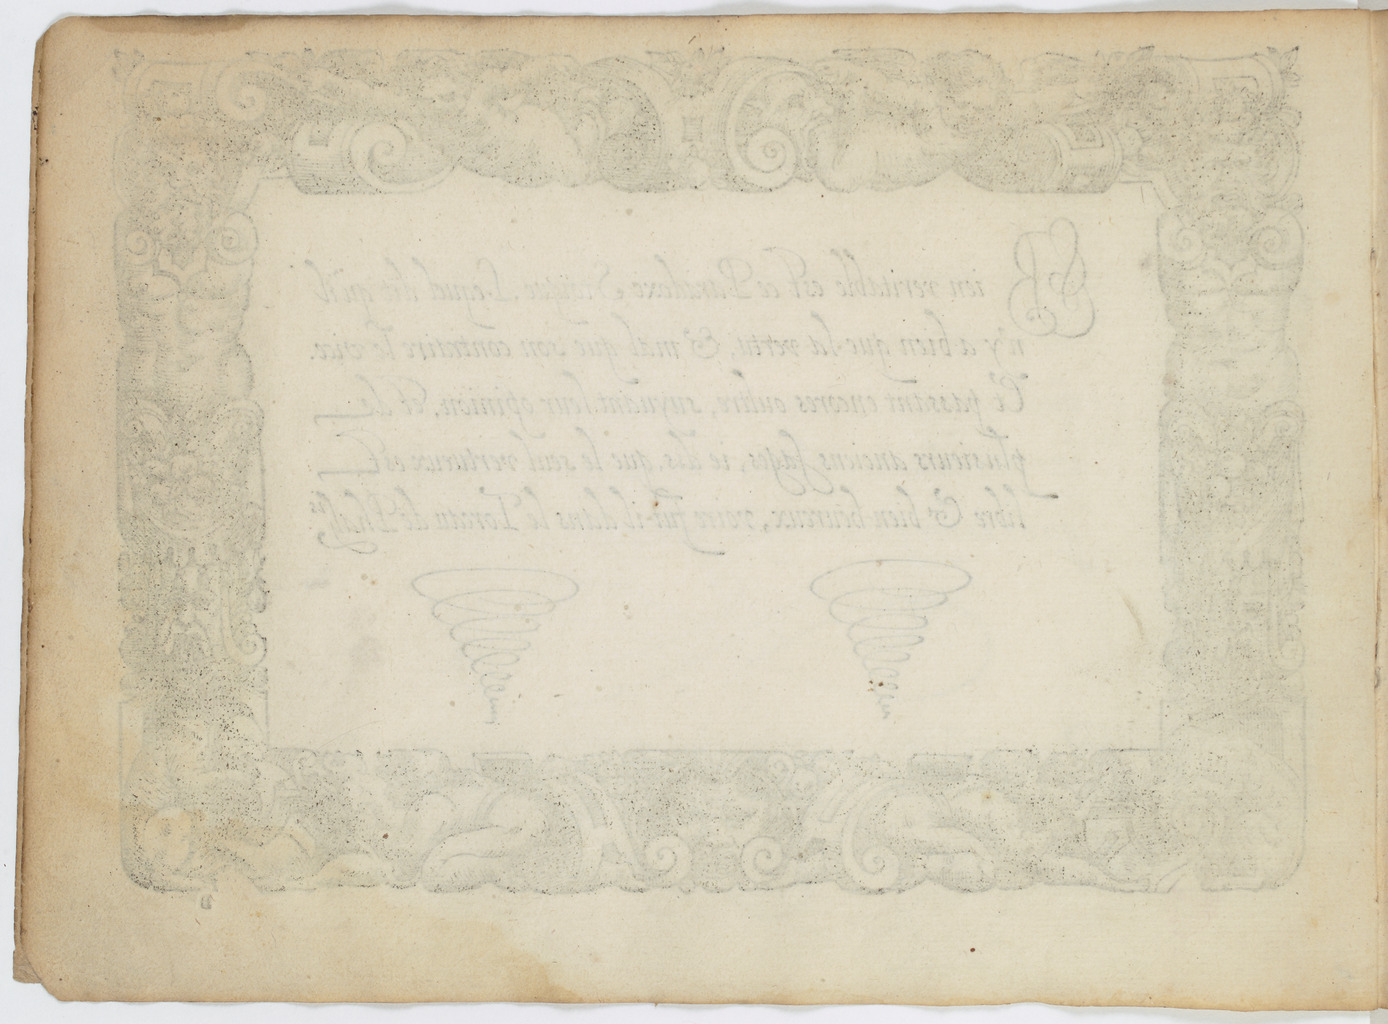 Bien veritable est ce Paradoxe Stoique. Lequel dit qu'il
n'y a bien que la vertu, & mal que son contraire le vice.
Et passant encores oultre, suyuant leur opinion, et de
plusieurs anciens sages, ie dis, que le seul vertueux est
libre & bien heureux, voire fut-il dans le Toreau de